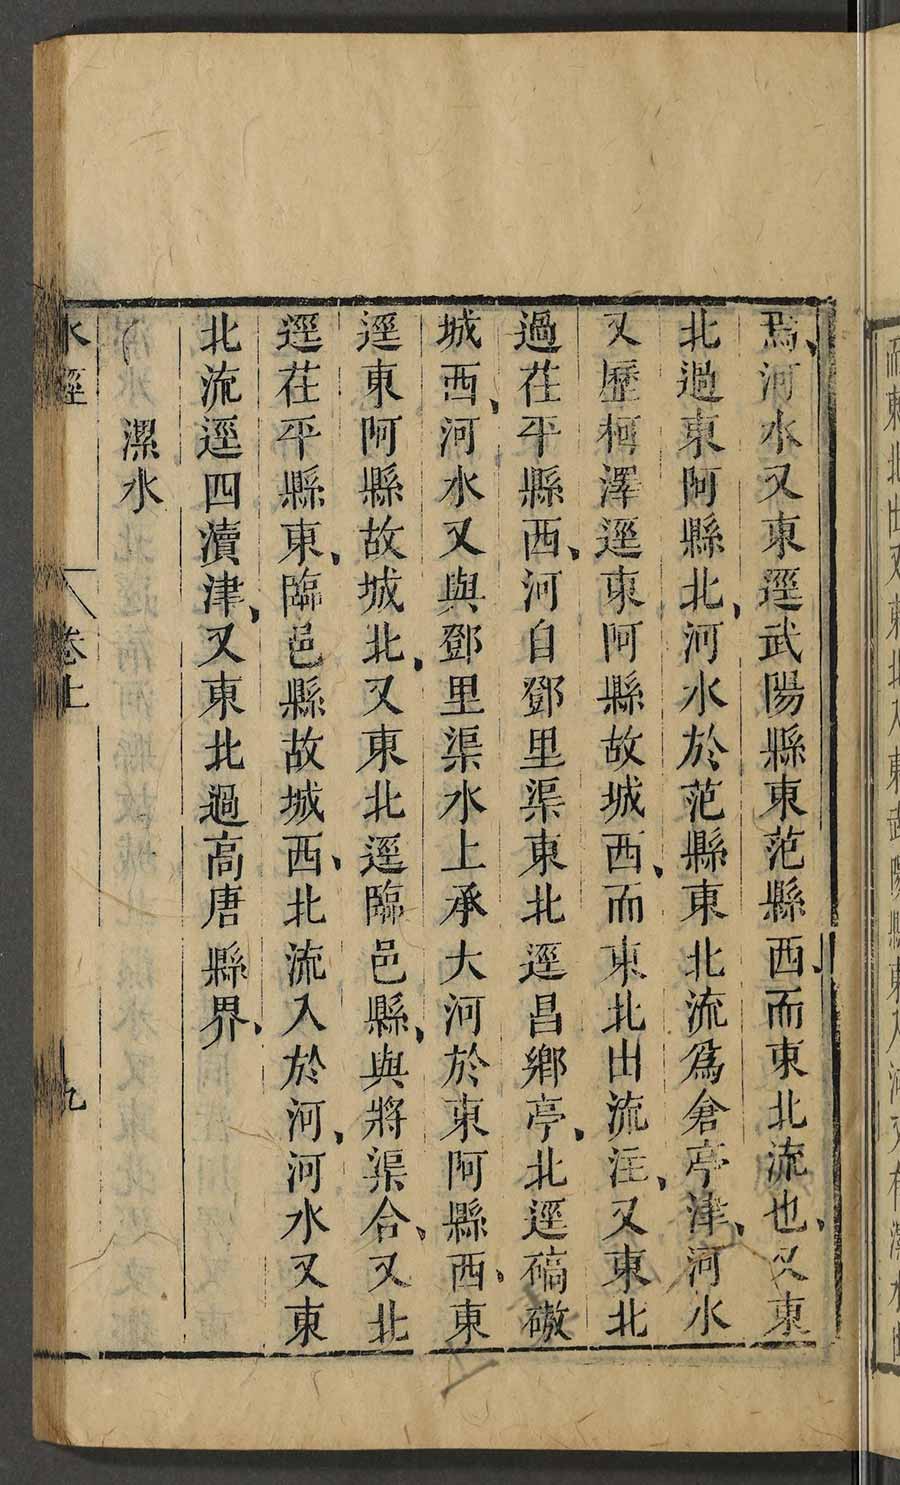 焉河水又東逕武陽縣東范縣西而東北流也又東
北過東阿縣北河水於范縣東北流爲倉亭津河水
又歷柯澤逕東阿縣故城西而東北出流注又東北
過茌平縣西河自鄧里渠東北逕昌鄉亭北逕碻磝
城西河水又與鄧里渠水上承大河於東阿縣西東
逕東阿縣故城北又東北逕臨邑縣與將渠合又北
逕茌平縣東臨邑縣故城西北流入於河河水又東
北流逕四瀆津又東北過高唐縣界
漯水
水經 卷上 九